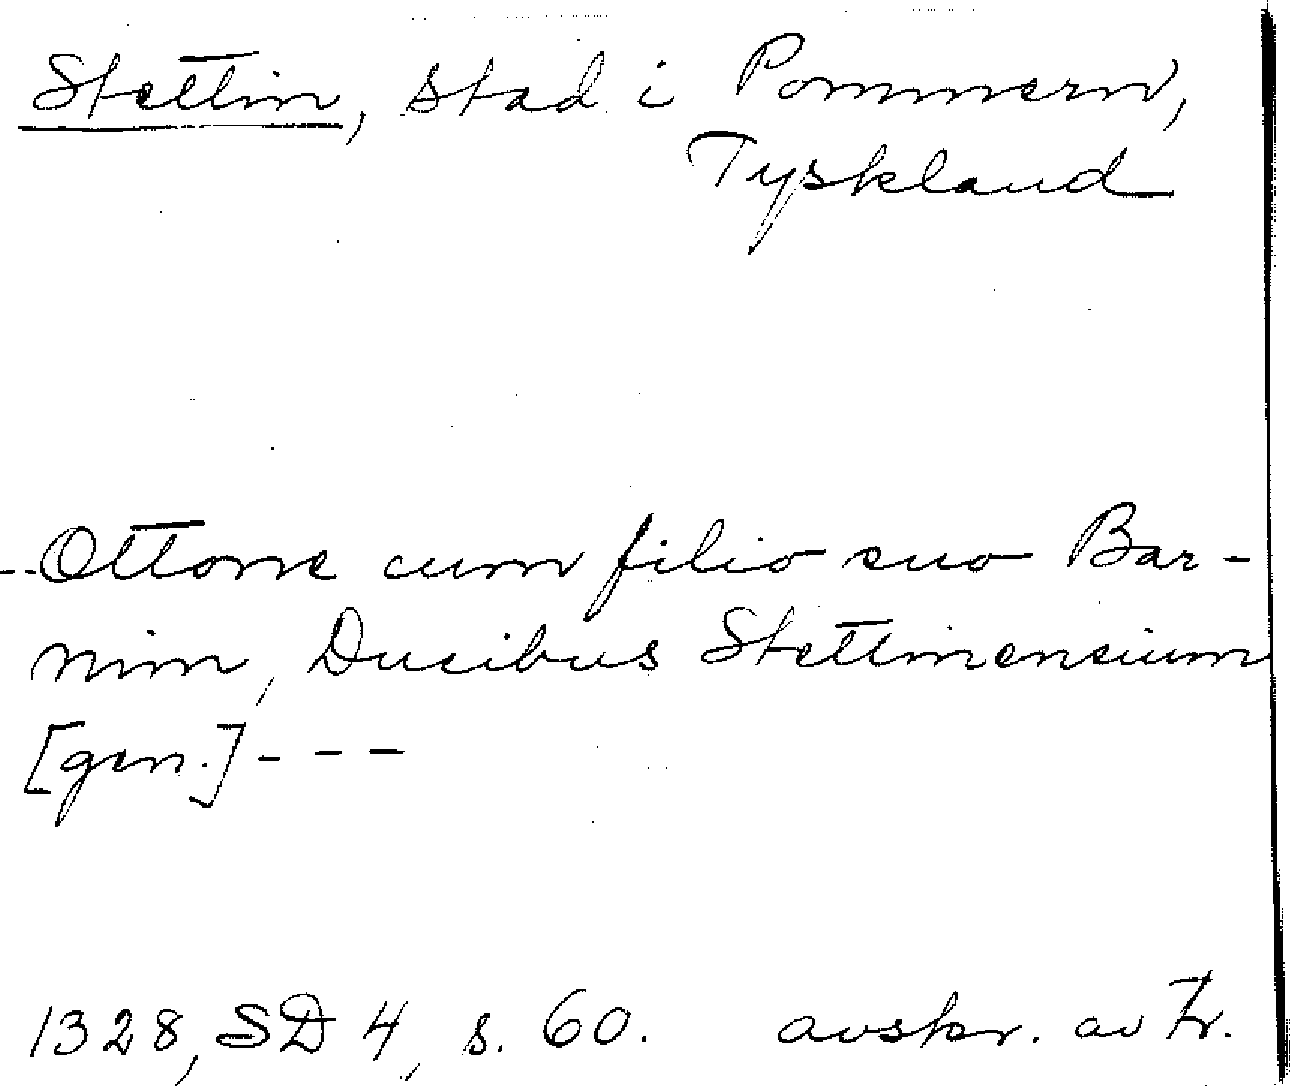 Stettin, stad i Pommern,
Tyskland
--Ottone cum filio suo Bar-
nim, Ducibus Stettinensium
[gen.]---
1328, SD 4, s. 60. avskr. av Tr.